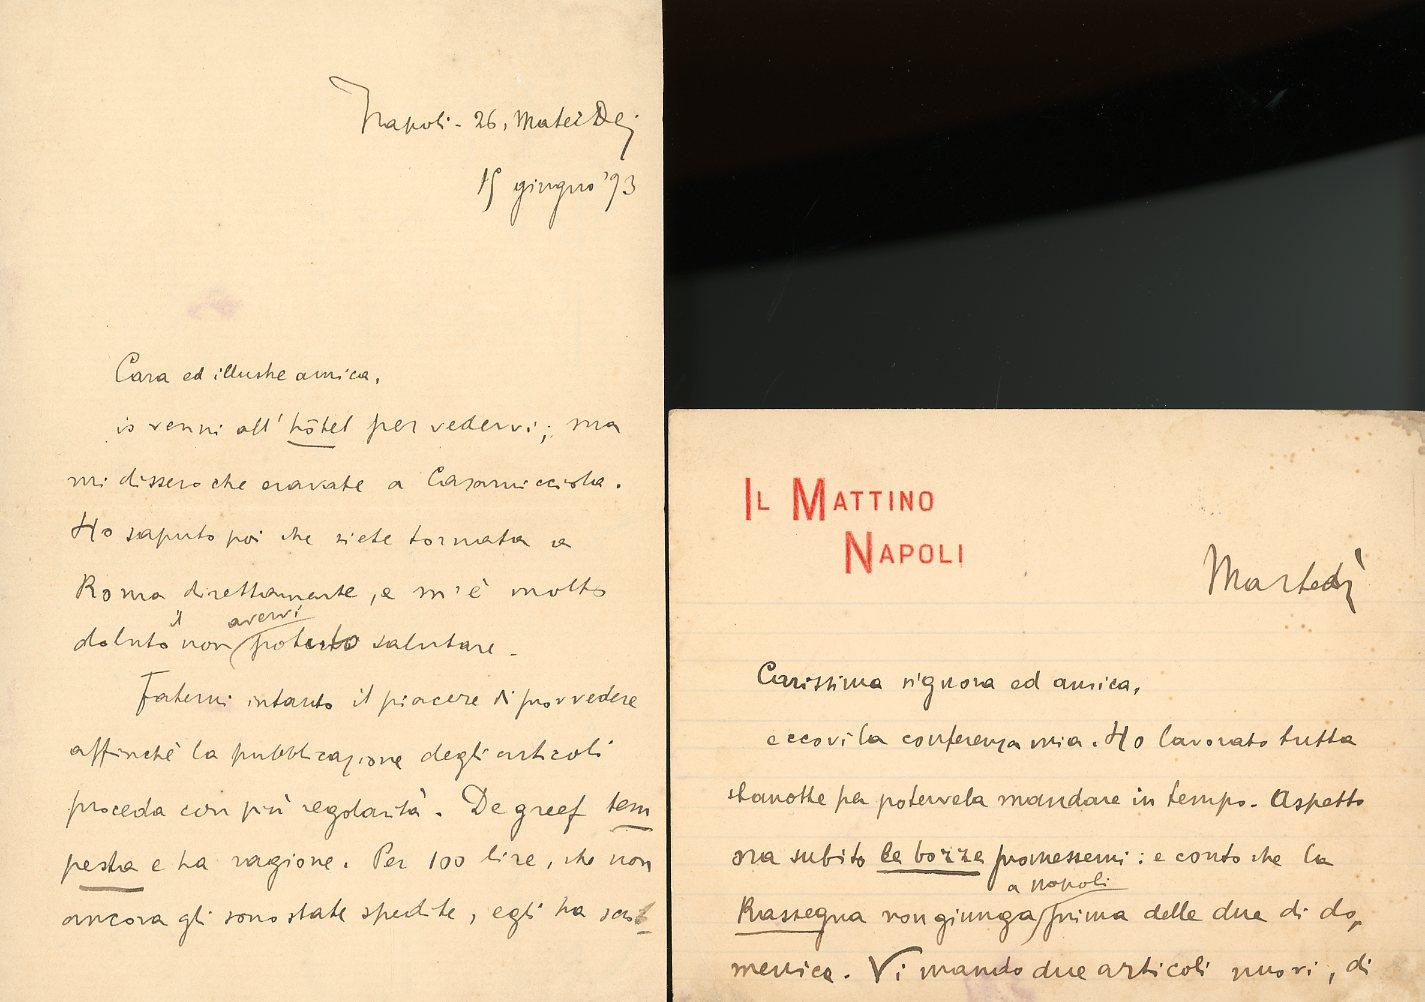 Napoli - 26, Mater Dei
15 giugno '93
Cara ed illustre amica,
io venni all' hôtel per vedervi; ma
mi dissero che eravate a Casamicciola.
Ho saputo poi che siete tornata a
Roma direttamente, e m'è molto
doluto il non avervi potuto salutare.
Fatemi intanto il piacere di provvedere
affinchè la pubblicazione degli articoli
proceda con più regolarità. De Greef tem
pesta e ha ragione. Per 100 lire, che non
ancora gli sono state spedite, egli ha
IL MATTINO
NAPOLI
Martedì
Carissima signora ed amica,
eccovi la conferenza mia. Ho lavorato tutta
stanotte per potervela mandare in tempo. Aspetto
ora subito le bozze promessemi: e conto che la
Rassegna non giunga a Napoli prima delle due di do,
menica. Vi mando due articoli nuovi, di